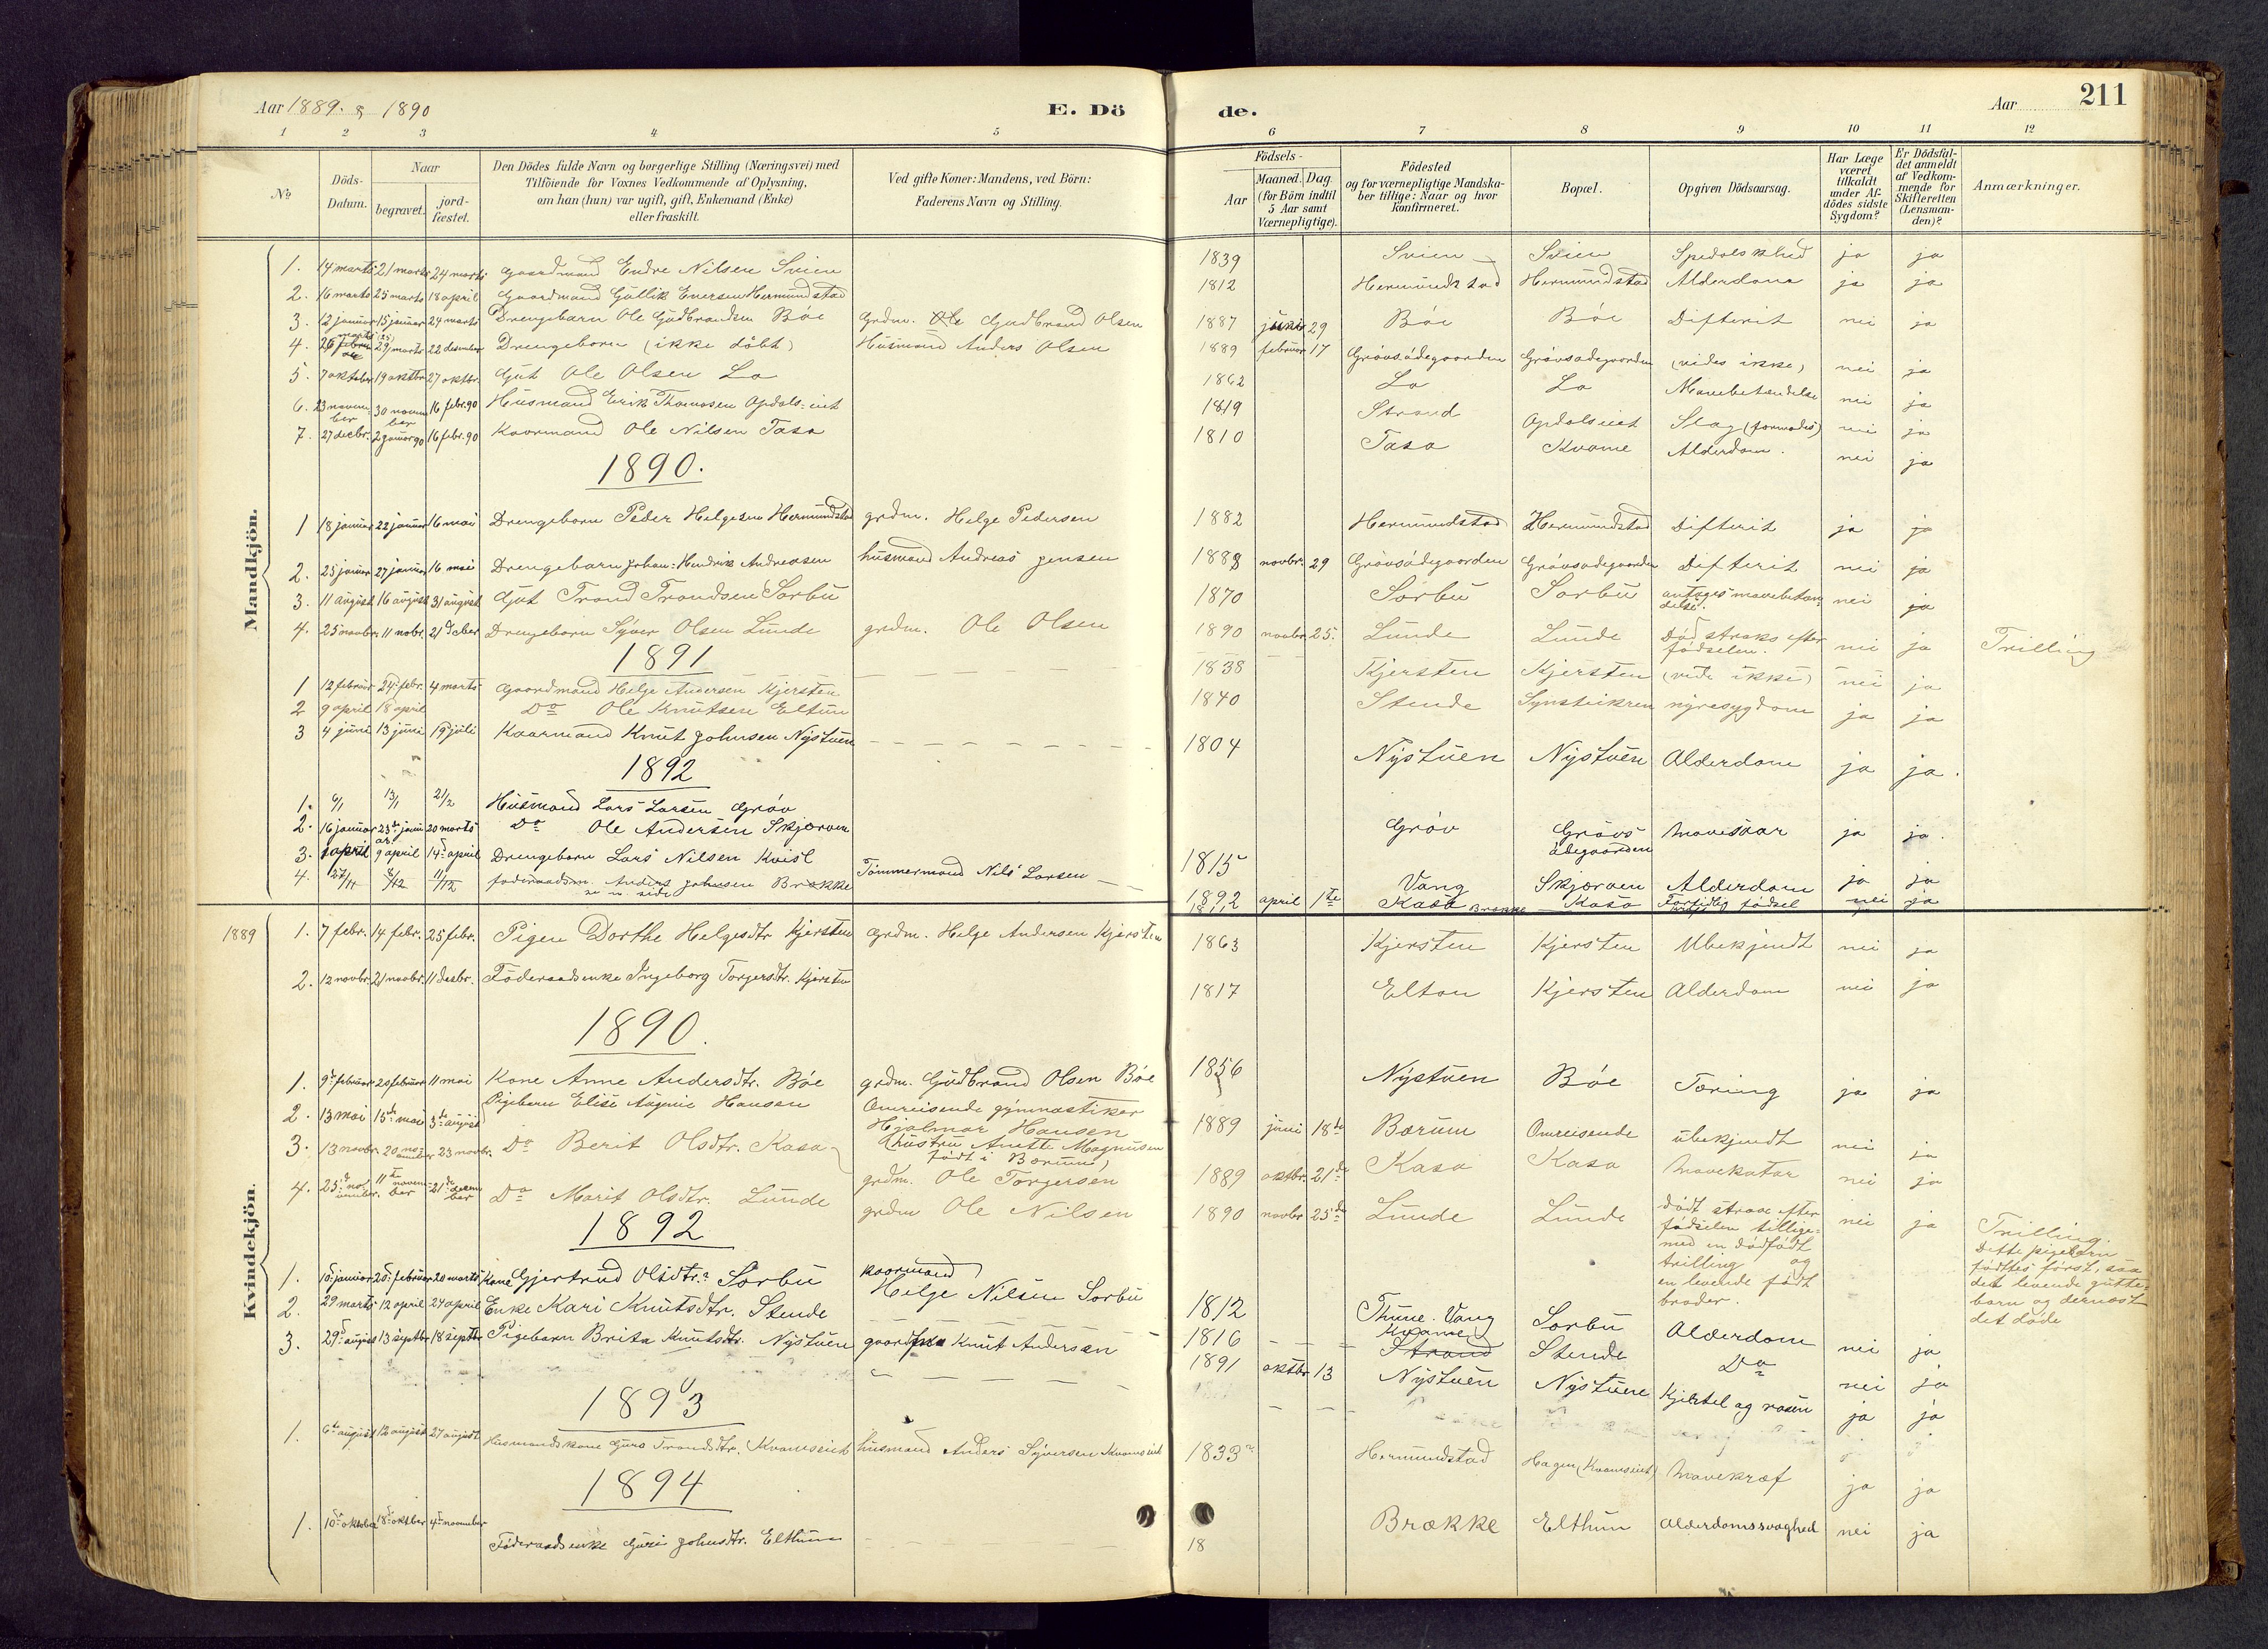 Aar 1889. & 1890 E. Dö de. Aar 211
1 2 3 4 5 6 7 8 9 10 11 12
No
Döds-Datum.
Naar
begravet.
jord-fæstet.
Den Dödes fulde Navn og borgerlige Stilling (Næringsvei) med
Tilföiende for Voxnes Vedkommende af Oplysning,
om han (hun) var ugift, gift, Enkemand (Enke)
eller fraskilt.
Ved gifte Koner: Mandens, ved Börn:
Faderens Navn og Stilling.
Födsels-
Aar
Maaned. Dag
(for Börn indtil
5 Aar samt
Værnepligtige).
Födested
og for værnepligtige Mandska-
ber tillige: Naar og hvor
konfirmeret.
Bopæl.
Opgiven Dödsaarsag.
Har Læge
været
tilkaldt
under Af-
dödes sidste
Sygdom?
Er Dödsfal-
det anmeldt
af Vedkom-
mende for
Skifteretten
(Lensman-
den)?
Anmærkninger.
Mandkjön.
1. 14 marts 21 marts 24 marts Gaardmand Endre Nilsen Svien 1839 Svien Svien Spedalskhed ja ja
2. 16 marts 25 marts 18 april Gaardmand Gullik Enersen Hermundstad 1812 Hermundstad Hermundstad Alderdom ja ja
3. 12 januar 15 januar 24 marts Drengebarn Ole Gudbrandsen Böe Grdm. Gudbrand Olsen 1887 29 Böe Böe Difterit nei ja
4. 26 29 marts 22 desember Drengebarn (ikke döbt) Husmand Anders Olsen 1889 februar 17 Grövsödegaarden Grövsødegaarden (vides ikke) nei ja
5. 7 oktober 19 oktbr. 27 oktbr. Gut Ole Olsen Lo 1862 Lo Lo Mavebetændelse nei ja
6. 23 november 30 november 16 febr. 90 Husmand Erik Thomasen Opdals-eiet 1819 Strand Opdalseiet Slag (formodes) nei ja
7. 27 decbr. 2 januar 90 16 febr. 90 Kaarmand Ole Nilsen Tasa 1810 Tasa Kvame Alderdom. nei ja
1890.
1 18 januar 22 januar 16 mai Drengebarn Peder Helgesen Hermundstad grdm. Helge Pedersen 1882 Hermundstad Hermundstad Difterit ja ja
2. 25 januar 27 januar 16 mai Drengebarn Johan Hendrik Andreasen husmand Andreas Jensen 1888 novbr. 29 Grövsödegaarden Grövsødegaarden Difterit nei ja
3. 11 august 16 august 31 august Gut Trond Trondsen Sørbu 1870 Sörbu Sörbu antages mavebetændelse. nei ja
4. 25 novbr. 11 nobr. 21 dcber Drengebarn Syver Olsen Lunde grdm. Ole Olsen 1890 novbr. 25. Lunde Lunde Död straks efter födselen. nei ja Trilling
1891
1 12 februar 24 febr. 4 marts Gaardmand Helge Andersen Kjersten 1838 Kjersten Kjersten (vides ikke) nei ja
2 9 april 18 april Do Ole Knutsen Eltun 1840 Stende Synsteikren nyresygdom ja ja
3 4 juni 13 juni 19 juli Kaarmand Knut Johnsen Nystuen 1804 Nystuen Nystuen Alderdom ja ja.
1892
1. 6/1 13/1 21/2 Husmand Lars Larsen Gröv Gröv Grövsödegaarden mavesaar ja ja.
2. 16 januar 23 januar 20 marts Do Ole Andersen Skjerven 1815 Vang Skjerven Alderdom ja ja
3. 1 april 9 april 14 april Drengebarn Lars Nilsen Kvisl Tömmermand Nils Larsen 1892 april 1te Kasa Kasa Fortidlig födsel nei ja
4. 27/11 8/12 11/12 föderaadsm. Anders Johnsen Brække Brække
Kvindekjön.
1889 1. 7 febr. 14 febr. 25 febr. Pigen Dorthe Helgesdtr Kjersten grdm. Helge Andersen Kjersten 1863 Kjersten Kjersten Ubekjendt nei ja
2. 12 novbr. 21 novbr. 11 desbr. Föderaadsenke Ingeborg Torgersdtr. Kjersten 1817 Elton Kjersten Alderdom nei ja
1890.
1. 9 februar 20 februar 11 mai Kone Anne Andersdtr. Böe grdm. Gudbrand Olsen Böe 1856 Nystuen Böe Tæring ja ja
2. 13 mai 15 mai 3 august Pigebarn Elise Augenie Hansen Omreisende gymnastiker Hjalmar Hansen (hustru Anette Magnusen födt i Bærum) 1889 juni 18de Bærum Omreisende ubekjendt nei ja
3. 13 novbr. 20 november 23 novbr. Do Berit Olsdtr. Kasa grdm. Ole Torgersen 1889 oktbr. 21de Kasa Kasa Mavekatar nei ja
4. 25 november. 11 november 21 desember Do Marit Olsdtr. Lunde grdm Ole Nilsen 1890 novbr 25de Lunde Lunde dödt strax efter födselen tilligemed en dödfödt trilling og en levende födt broder. nei ja Trilling. Dette pigebarn födtes först, saa det levende guttebarn og dernæst det döde
1892
1. 10 januar 20 februar 20 marts Kone Gjertrud Olsdtr. Sørbu kaarmand Helge Nilsen Sørbu 1812 Thune. Vang Sorbu Alderdom nei ja
2. 29 marts 12 april 24 april Enke Kari Knutsdtr. Stende 1816 Kvame Strand Stende Do nei ja
3. 29 august 13 septbr 18 septbr Pigebarn Brita Knutsdtr. Nystuen Knut Andersen 1891 oktbr 13 Nystuen Nystuen Kjertel og rosen ja ja
1893
1. 6te august 12 august 27 august Husmandskone Guro Trondsdtr. Kvamseiet husmand Anders Syversen Kvamseiet 1833 Hermundstad Hagen (Kvamseiet) Mavekræf ja ja
1894
1. 10 oktober 18 oktber 4 november Föderaadsenke Guri Johnsdtr. Elthun 18 Brække Elthun Alderdomssvaghed nei ja